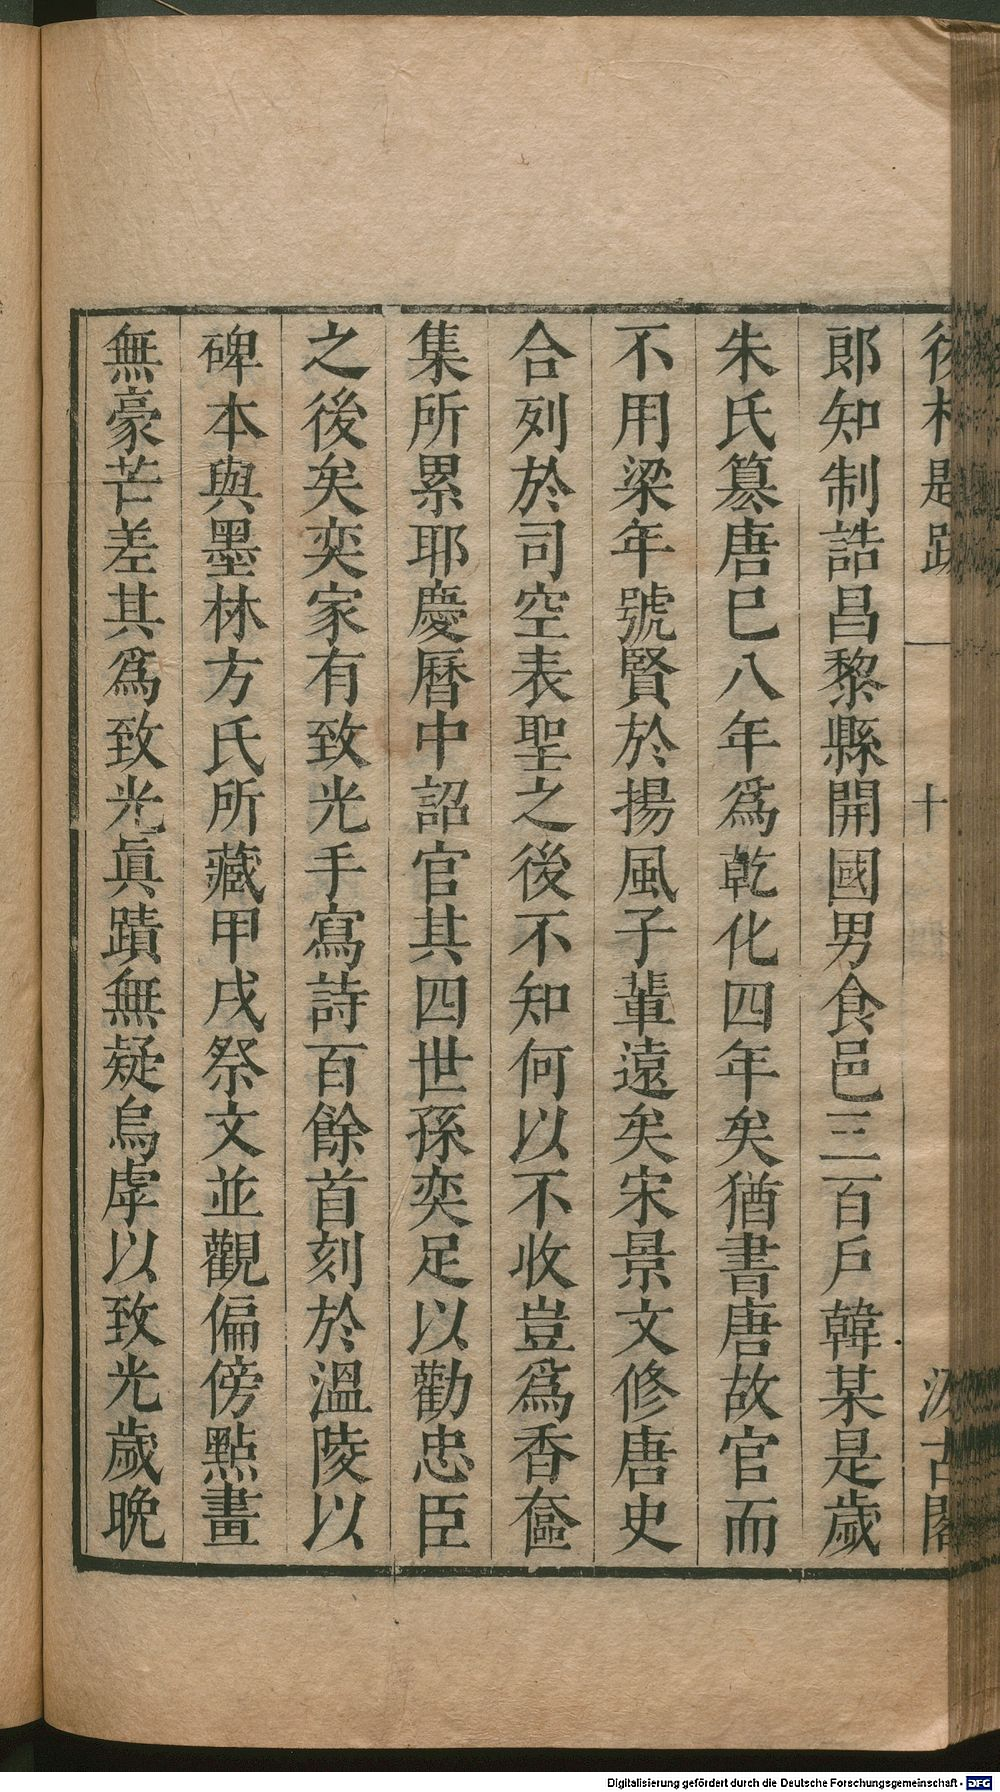 後村題跋 一 十 汲古閣
郎知制誥昌黎縣開國男食邑三百戶韓某是歲
朱氏篡唐巳八年爲乾化四年矣猶書唐故官而
不用梁年號賢於揚風子輩遠矣宋景文修唐史
合列於司空表聖之後不知何以不收豈爲香奩
集所累耶慶曆中詔官其四世孫奕足以勸忠臣
之後矣奕家有致光手寫詩百餘首刻於溫陵以
碑本與墨林方氏所藏甲戌祭文並觀偏傍點畫
無豪芒差其爲致光眞蹟無疑烏虖以致光歲晩
Digitalisierung gefördert durch die Deutsche Forschungsgemeinschaft - DFG